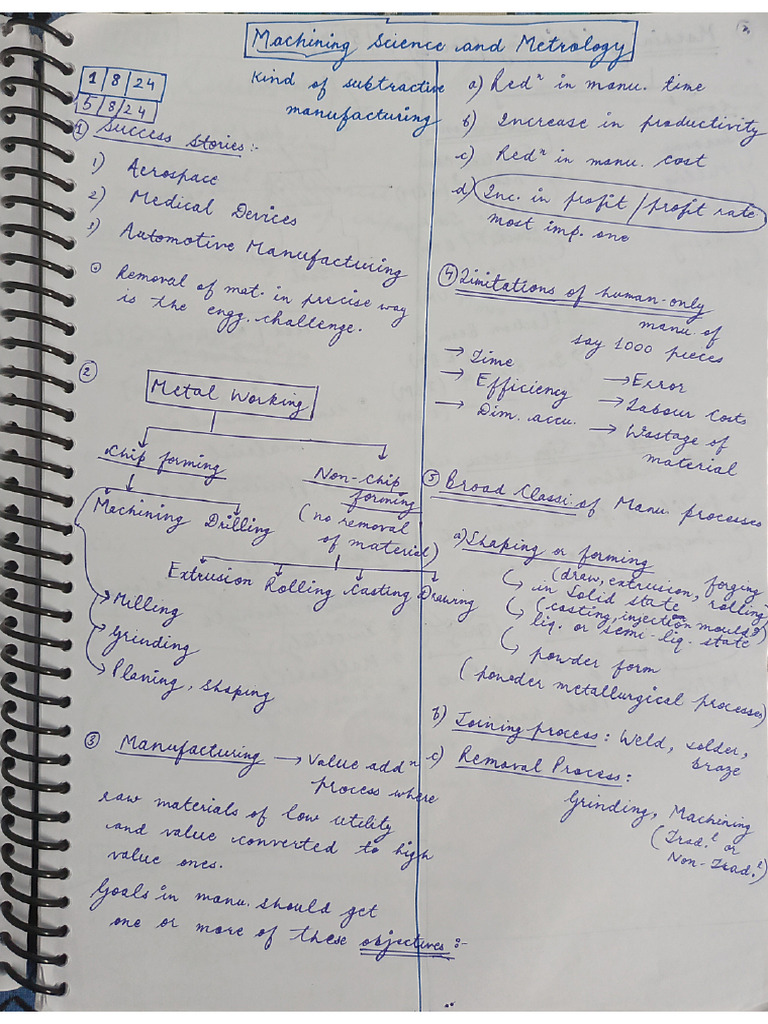 Machining Science and Metrology
1 | 8 | 24
5 | 8 | 24
Kind of subtractive
manufacturing
① Success Stories:-
1) Aerospace
2) Medical Devices
3) Automotive Manufacturing
Removal of mat. in precise way
is the engg. challenge.
②
Metal Working
Chip forming
Non-chip
forming
(no removal
of material)
Machining Drilling
Extrusion Rolling Casting Drawing
→ Milling
→ Grinding
→ Planing, Shaping
③ Manufacturing → Value addⁿ
process where
raw materials of low utility
and value converted to high
value ones.
Goals in manu. should get
one or more of these objectives:-
a) Redⁿ in manu. time
b) Increase in productivity
c) Redⁿ in manu. cost
d) Inc. in profit / profit rate
most imp. one
④ Limitations of human-only
manu. of
say 1000 pieces
→ Time
→ Efficiency
→ Dim. accu.
→ Error
→ Labour Costs
→ Wastage of
material
⑤ Broad Classi. of Manu. processes
a) Shaping or forming
(draw, extrusion, forging, rolling)
in Solid state
(casting, injection mould^g)
liq. or semi-liq. state
powder form
(powder metallurgical processes)
b) Joining process: Weld, solder,
braze
c) Removal Process:
Grinding, Machining
(Trad.^l or
Non-Trad.^l)